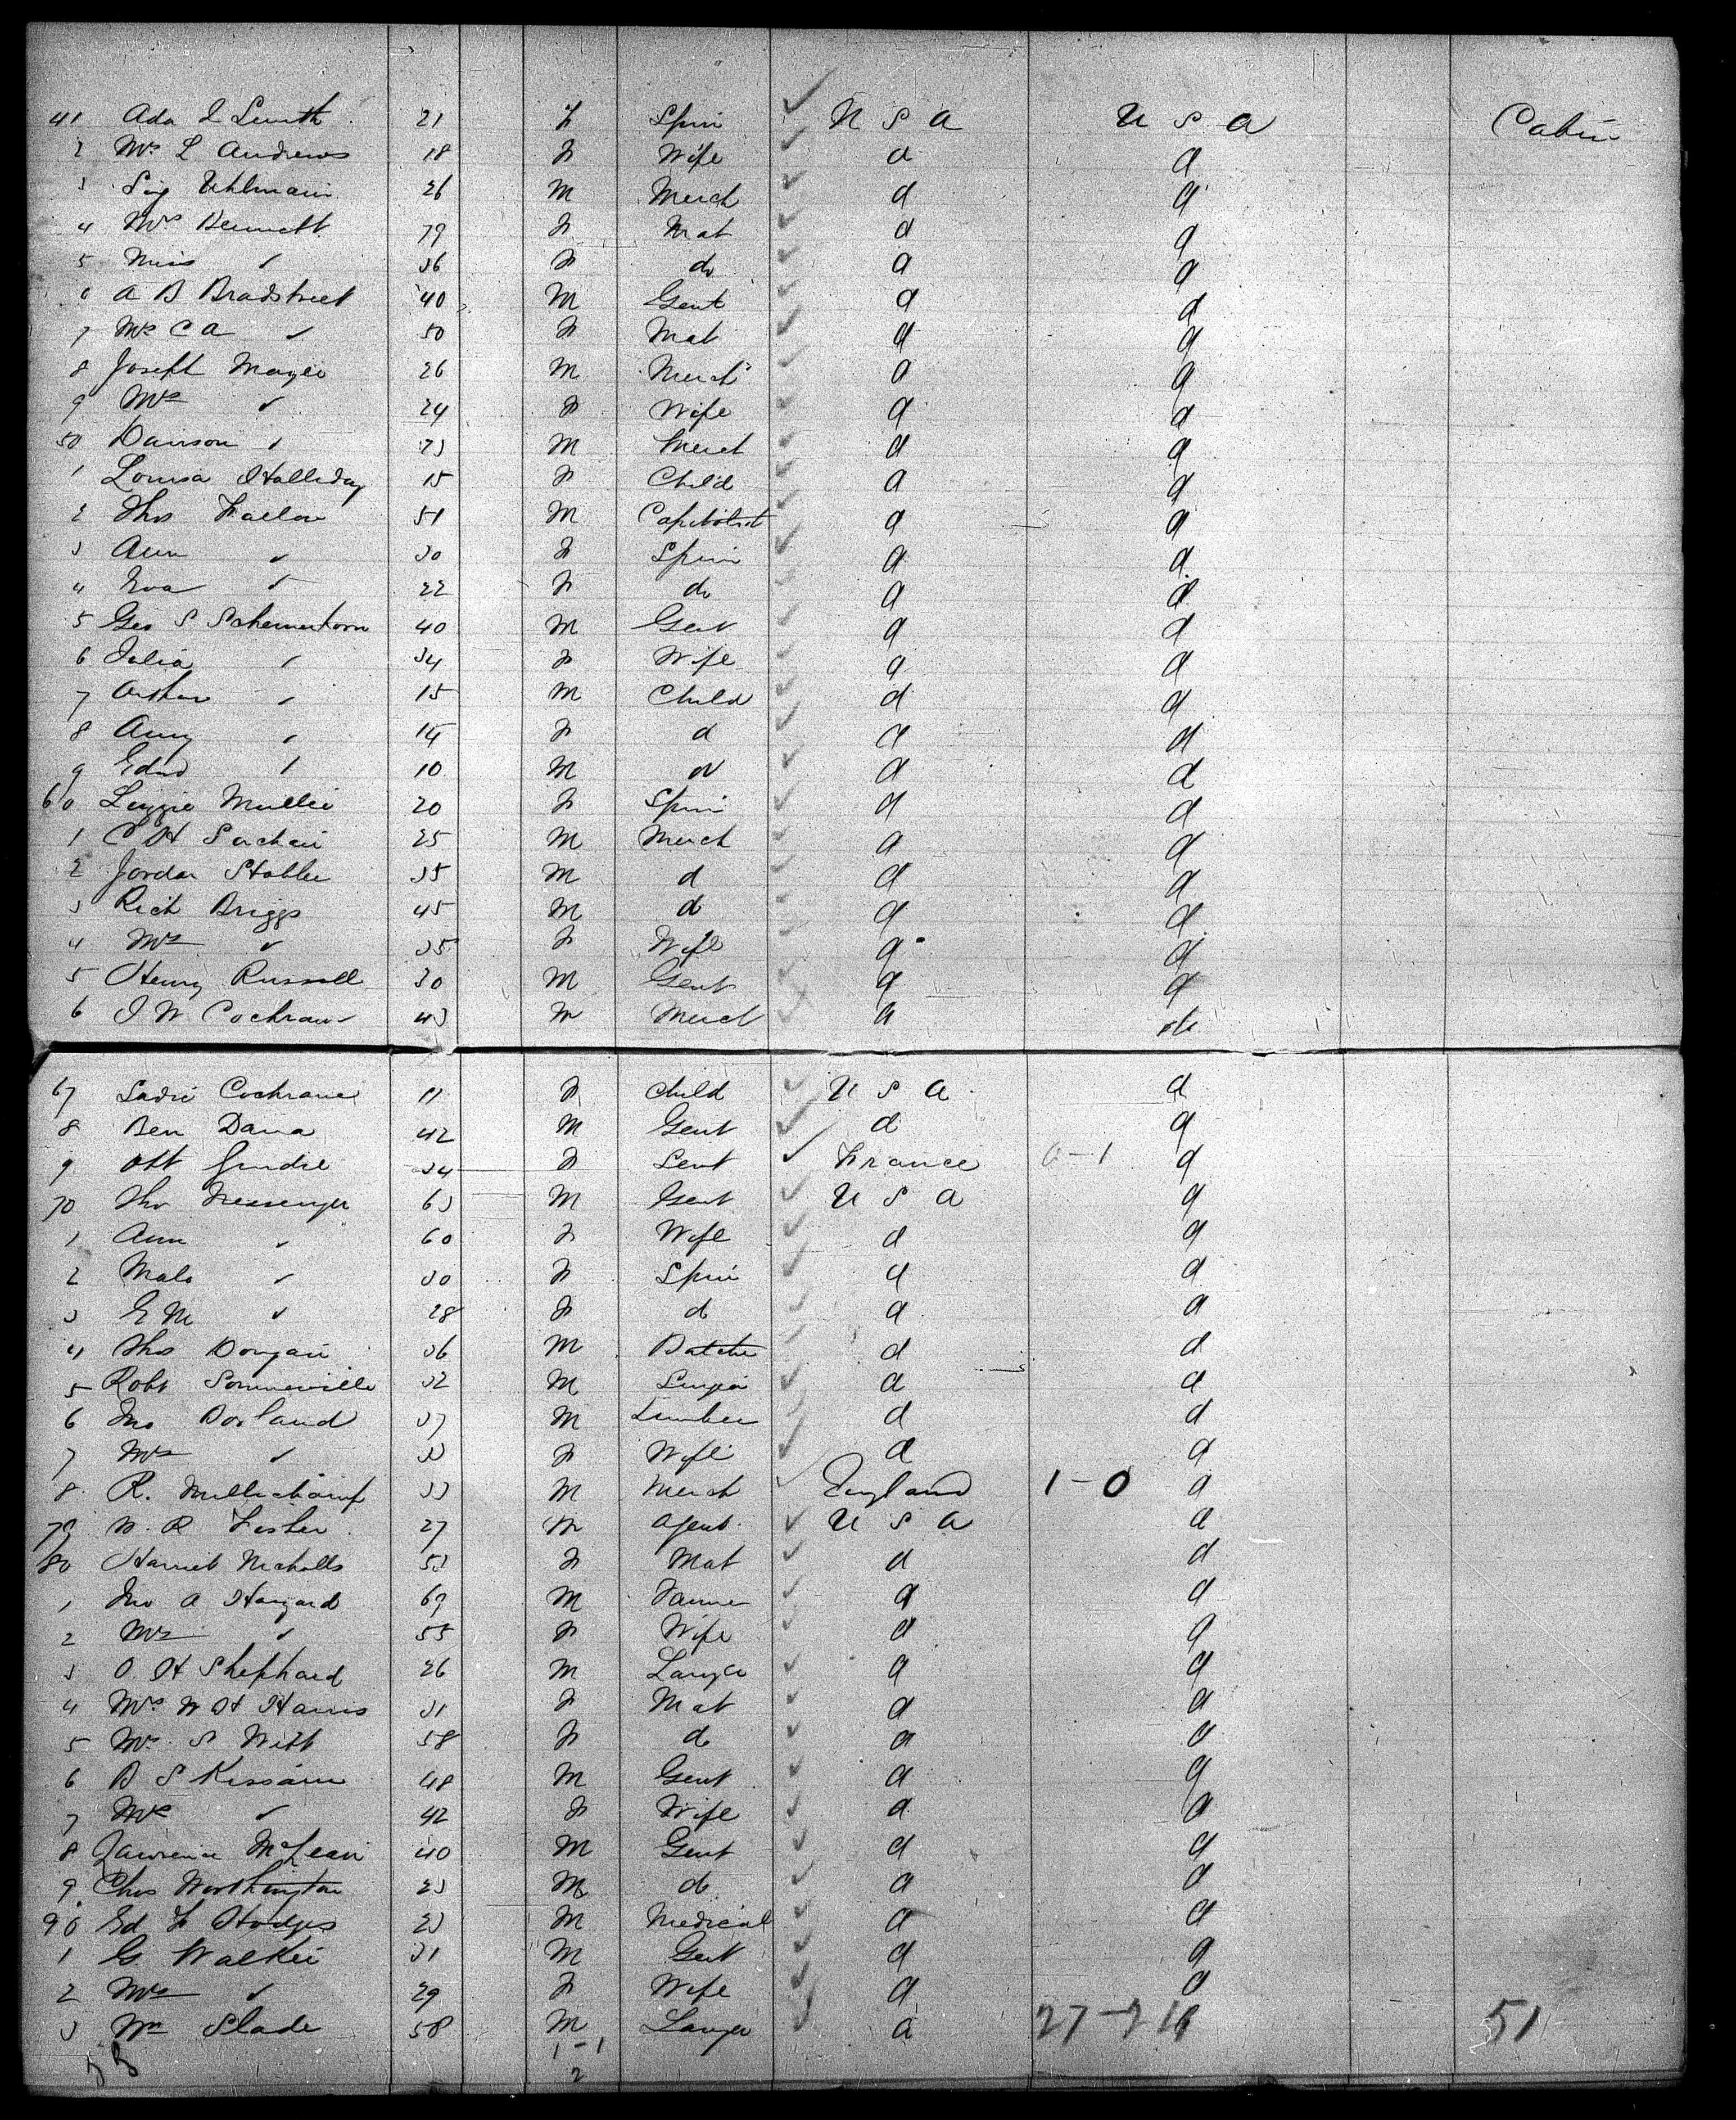 41 Ada I Smith 21 F Spin U S A U S A Cabin
2 Mrs L Andrews 18 F Wife d d
3 Sig Uhlmann 26 M Merch d d
4 Mrs Bennett 79 F Mat d d
5 Miss " 36 F do d d
6 A B Bradstreet 40 M Gent d d
7 Mrs C A " 50 F Mat d d
8 Joseph Magee 26 M Merch d d
9 Mrs " 24 F Wife d d
50 " 23 M Merch d d
1 Louisa Halliday 15 F Child d d
2 Thos Fallon 51 M Capitalist d d
3 Ann " 30 F Spin d d
4 Eva " 22 F do d d
5 Geo S Schemerhorn 40 M Gent d d
6 Julia " 34 F Wife d d
7 Arthur " 15 M Child d d
8 Amy " 14 F d d d
9 Edwd " 10 M d d d
60 Lizzie 20 F Spin d d
1 C H 25 M Merch d d
2 Jordan Stabler 35 M d d d
3 Rich Briggs 45 M d d d
4 Mrs " 35 F Wife d d
5 Henry Russell 30 M Gent d d
6 J W Cochran 43 M Merch d do
67 Sadie Cochrane 11 F Child U S A d
8 Ben Dana 42 M Gent d d
9 Ott 34 F Gent France 0-1 d
70 Tho Messenger 63 M Gent U S A d
1 Ann " 60 F Wife d d
2 " 30 F Spin d d
3 E M " 28 F d d d
4 Thos Dongan 36 M Butcher d d
5 Robt Sommerville 32 M d d
6 Jno Dorland 37 M Lumber d d
7 Mrs " 33 F Wife d d
8 R. Millichamp 33 M Merch England 1-0 d
79 W. R Fisher 27 M Agent U S A d
80 Harriet Nicholls 53 F Mat d d
1 Jno A Hazzard 69 M Farmer d d
2 Mrs " 55 F Wife d d
3 O. H Shephard 26 M Lawyer d d
4 Mrs W H Harris 31 F Mat d d
5 Mrs S Witt 58 F do d d
6 B S Kissam 48 M Gent d d
7 Mrs " 42 F Wife d d
8 Lawrence McLean 40 M Gent d d
9 Chas Worthington 23 M do d d
90 Ed F Hodges 23 M Medical d d
1 G Walker 31 M Gent d d
2 Mrs " 29 F Wife d d
3 Wm Slade 58 M Lawyer d 27-2 51
53 1-1
2